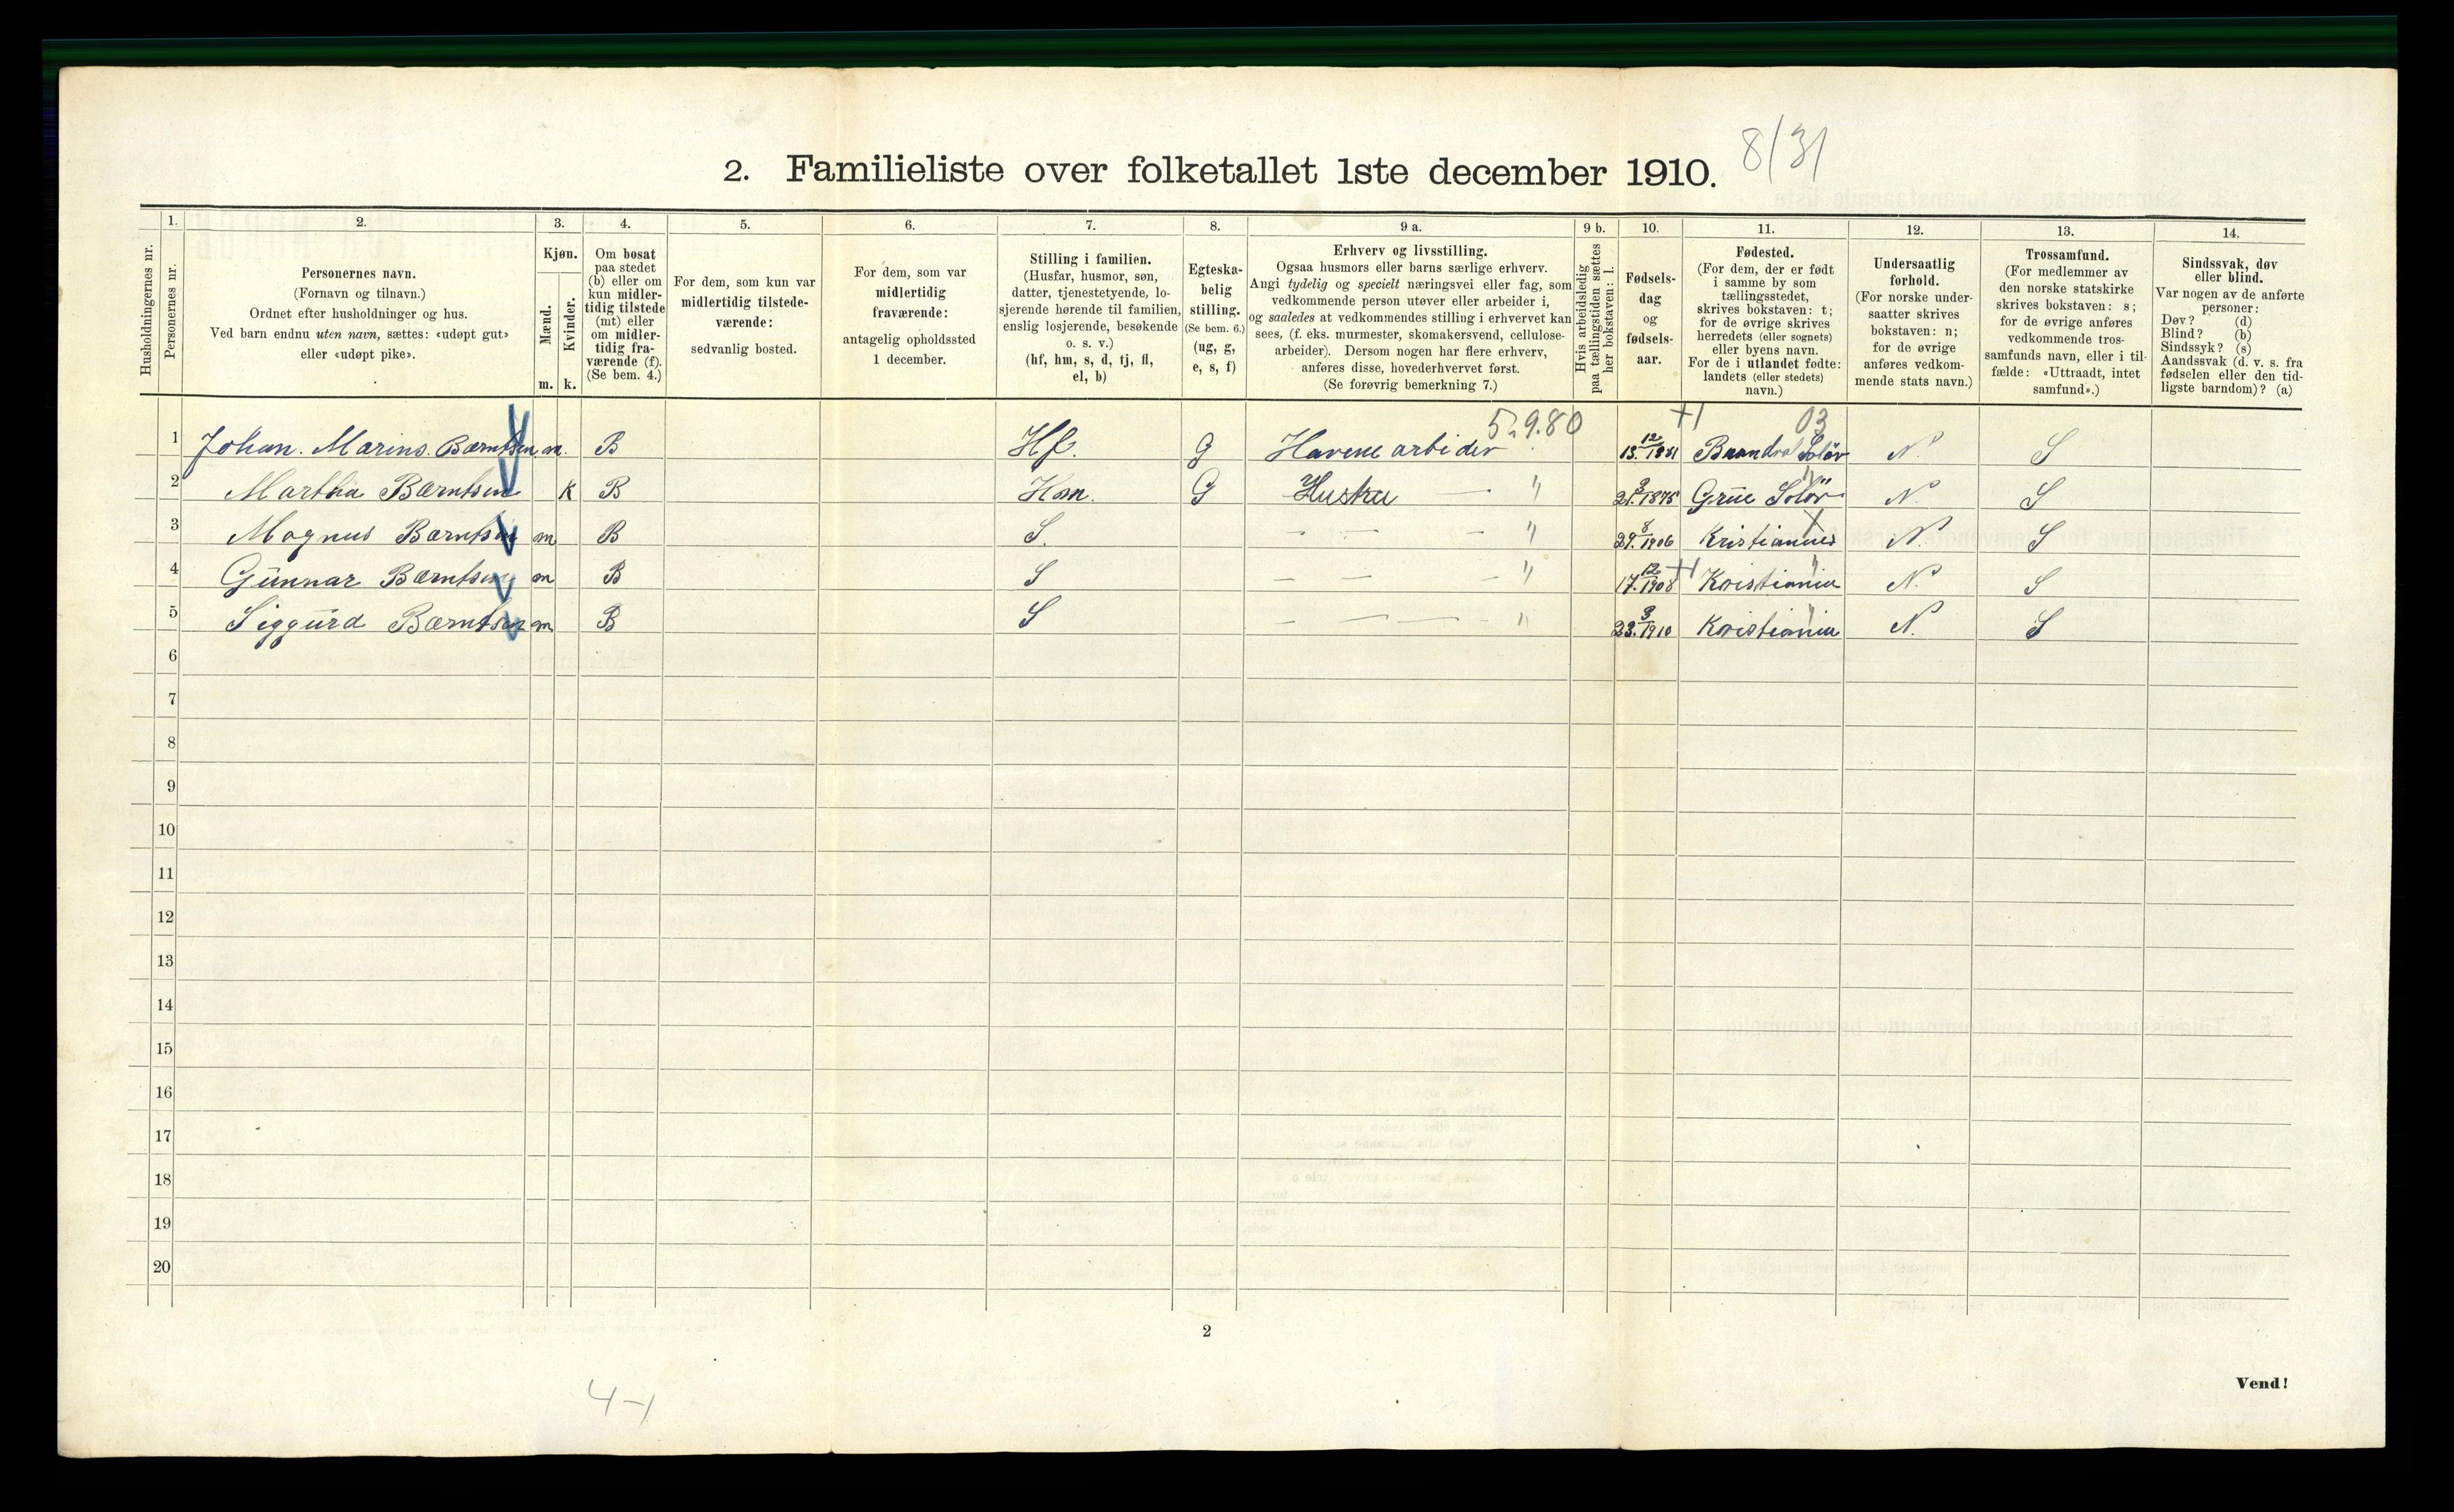 8/31
2. Familieliste over folketallet 1ste december 1910.
Husholdningernes nr.
1.
Personernes nr.
2.
Personernes navn.
(Fornavn og tilnavn.)
Ordnet efter husholdninger og hus.
Ved barn endnu uten navn, sættes: «udøpt gut»
eller «udøpt pike».
3.
Kjøn.
Mænd.
Kvinder.
m. k.
4.
Om bosat
paa stedet
(b) eller om
kun midler-
tidig tilstede
(mt) eller
om midler-
tidig fra-
værende (f).
(Se bem. 4.)
5.
For dem, som kun var
midlertidig tilstede-
værende:
sedvanlig bosted.
6.
For dem, som var
midlertidig
fraværende:
antagelig opholdssted
1 december.
7.
Stilling i familien.
(Husfar, husmor, søn,
datter, tjenestetyende, lo-
sjerende hørende til familien,
enslig losjerende, besøkende
o. s. v.)
(hf, hm, s, d, tj, fl,
el, b)
8.
Egteska-
belig
stilling.
(Se bem. 6.)
(ug, g,
e, s, f)
9 a.
Erhverv og livsstilling.
Ogsaa husmors eller barns særlige erhverv.
Angi tydelig og specielt næringsvei eller fag, som
vedkommende person utøver eller arbeider i,
og saaledes at vedkommendes stilling i erhvervet kan
sees, (f. eks. murmester, skomakersvend, cellulose-
arbeider). Dersom nogen har flere erhverv,
anføres disse, hovederhvervet først.
(Se forøvrig bemerkning 7.)
9 b.
Hvis arbeidsledig
paa tællingstiden sættes
her bokstaven: l.
10.
Fødsels-
dag
og
fødsels-
aar.
11.
Fødested.
(For dem, der er født
i samme by som
tællingsstedet,
skrives bokstaven: t;
for de øvrige skrives
herredets (eller sognets)
eller byens navn.
For de i utlandet fødte:
landets (eller stedets)
navn.)
12.
Undersaatlig
forhold.
(For norske under-
saatter skrives
bokstaven: n;
for de øvrige
anføres vedkom-
mende stats navn.)
13.
Trossamfund.
(For medlemmer av
den norske statskirke
skrives bokstaven: s;
for de øvrige anføres
vedkommende tros-
samfunds navn, eller i til-
fælde: «Uttraadt, intet
samfund».)
14.
Sindssvak, døv
eller blind.
Var nogen av de anførte
personer:
Døv? (d)
Blind? (b)
Sindssyk? (s)
Aandssvak (d. v. s. fra
fødselen eller den tid-
ligste barndom)? (a)
03
1 Johan. Marius. Bærntsen. m. B Hf. G Havne arbider 13. 12/1881 Brandval Solör N. S
2 Martha Bærntsen k B Hm. G Hustru — " 21. 9/1875 Grue Solör N. S
3 Magnus Bærntsen m B S. - - - " 29. 8/1906 Kristiania N. S
4 Gunnar Bærntsen m B S — — - " 17. 12/1908 Kristiania N. S
5 Siggurd Bærntsen m B S - — — - " 23. 9/1910 Kristiania N. S
6
7
8
9
10
11
12
13
14
15
16
17
18
19
20
2
Vend!
4-1